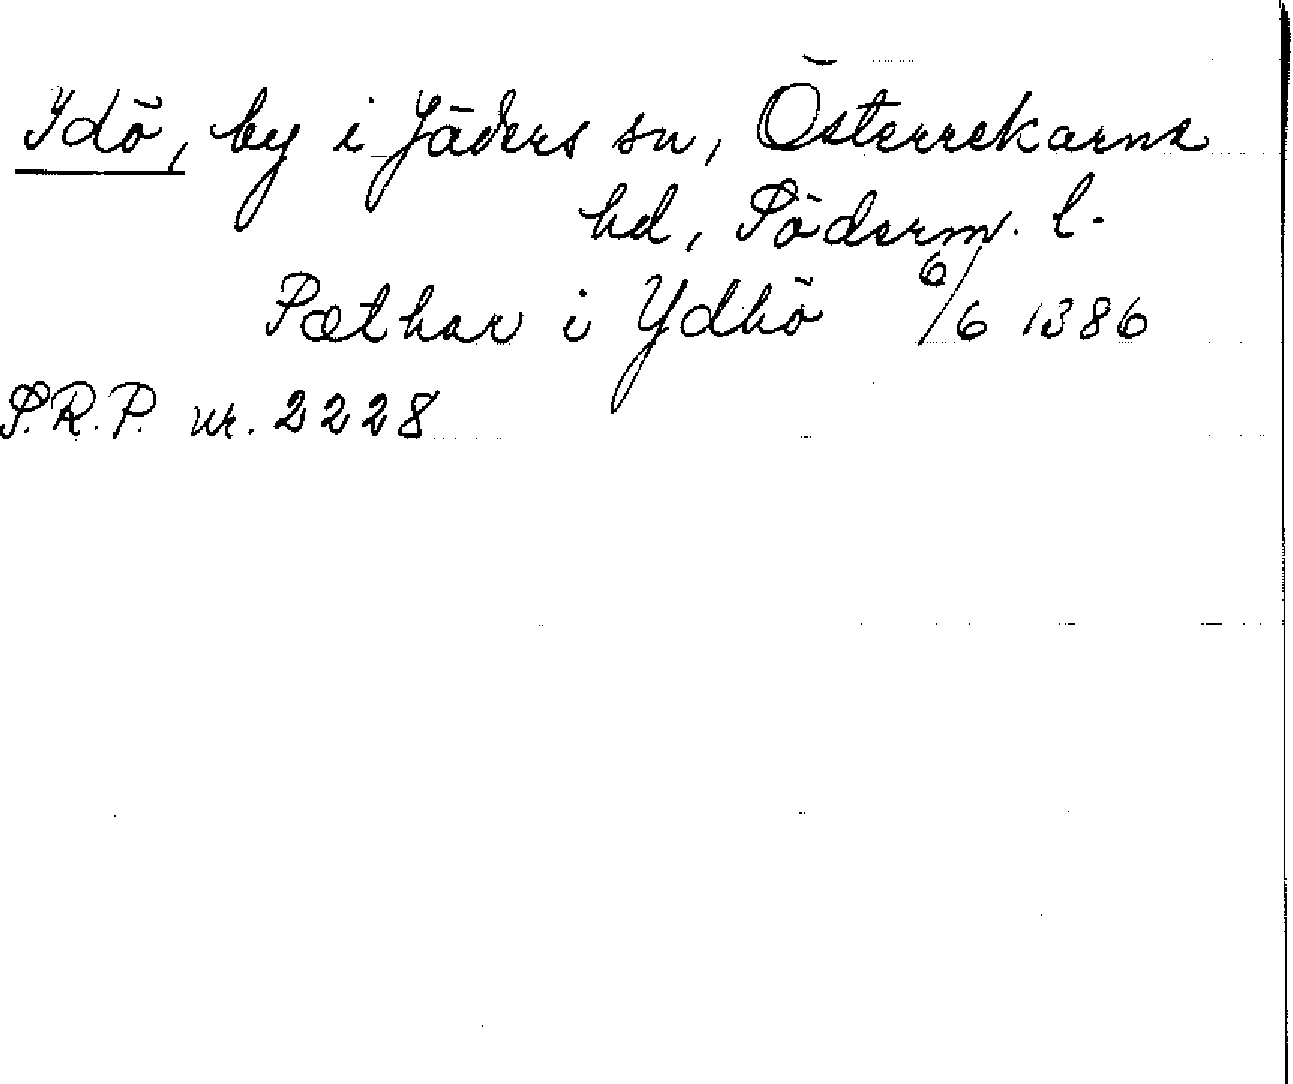 Ydö, by i Jäders sn, Österrekarne
hd, Söderm. l.
Pæthar i Ydhö 6/6 1386
S.R.P. nr. 2228